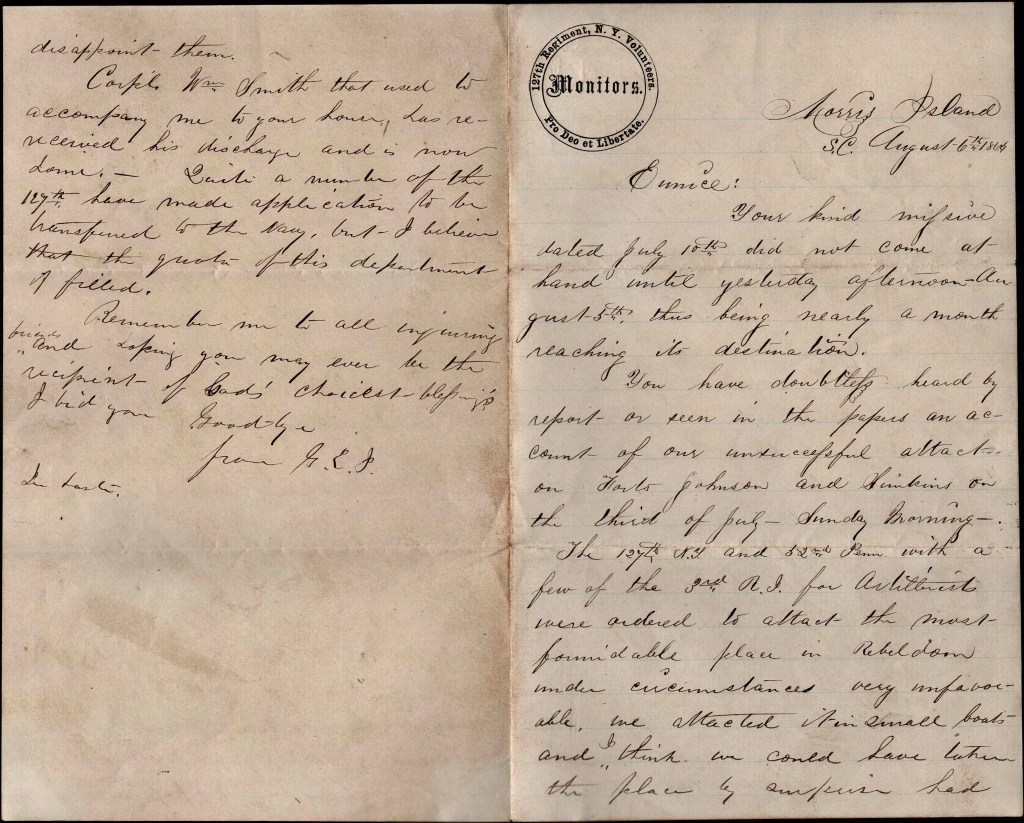 disappoint them.
Corpl. Wm Smith that used to
accompany me to your house, has re-
received his discharge and is now
home. — Quite a number of the
127th have made application to be
transfered to the Navy, but I believe
that the quota of this department
is filled.
Remember me to all inquiring
friends
"And hoping you may ever be the
recipient of God's choicest blessings
I bid you Good-bye
from G. E. P.
In haste.
127th Regiment, N. Y. Volunteers.
Monitors.
Pro Deo et Libertate.
Morris Island
S.C. August 6th 1864
Eunice:
Your kind missive
dated July 10th did not come at
hand until yesterday afternoon—Au
gust 5th, thus being nearly a month
reaching its destination.
You have doubtless heard by
report or seen in the papers an ac-
count of our unsuccessful attact
on Forts Johnson and Simkins on
the third of July — Sunday Morning —.
The 127th N.Y and 52nd Penn with a
few of the 3rd R.I. for Artillerists
were ordered to attact the most
formidable place in Rebeldom
under circumstances very unfavor-
able, we attacted it in small boats
and "I think we could have taken
the place by surprise had